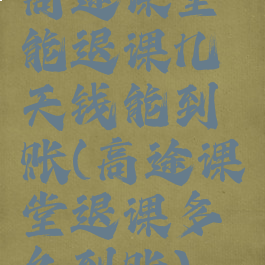 高途课堂
能退课几
天钱能到
账(高途课
堂退课多
久到账)